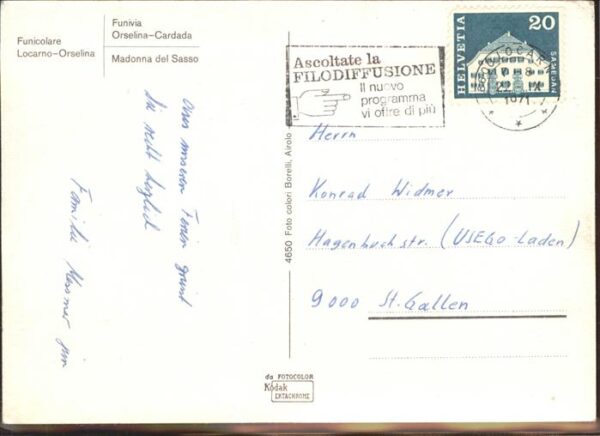 Funicolare
Locarno-Orselina
Funivia
Orselina-Cardada
Madonna del Sasso
Ascoltate la
FILODIFFUSIONE
Il nuovo
programma
vi offre di più
HELVETIA
20
SAMEDAN
6600 LOCARNO
22. IX
1971
Aus unseren Ferien grüsst
Sie recht herzlich
Familie Messmer jun
4650 Foto colori Borelli, Airolo
Herrn
Konrad Widmer
Hagenbuchstr. (USEGO-Laden)
9000 St. Gallen
da FOTOCOLOR
Kodak
EKTACHROME